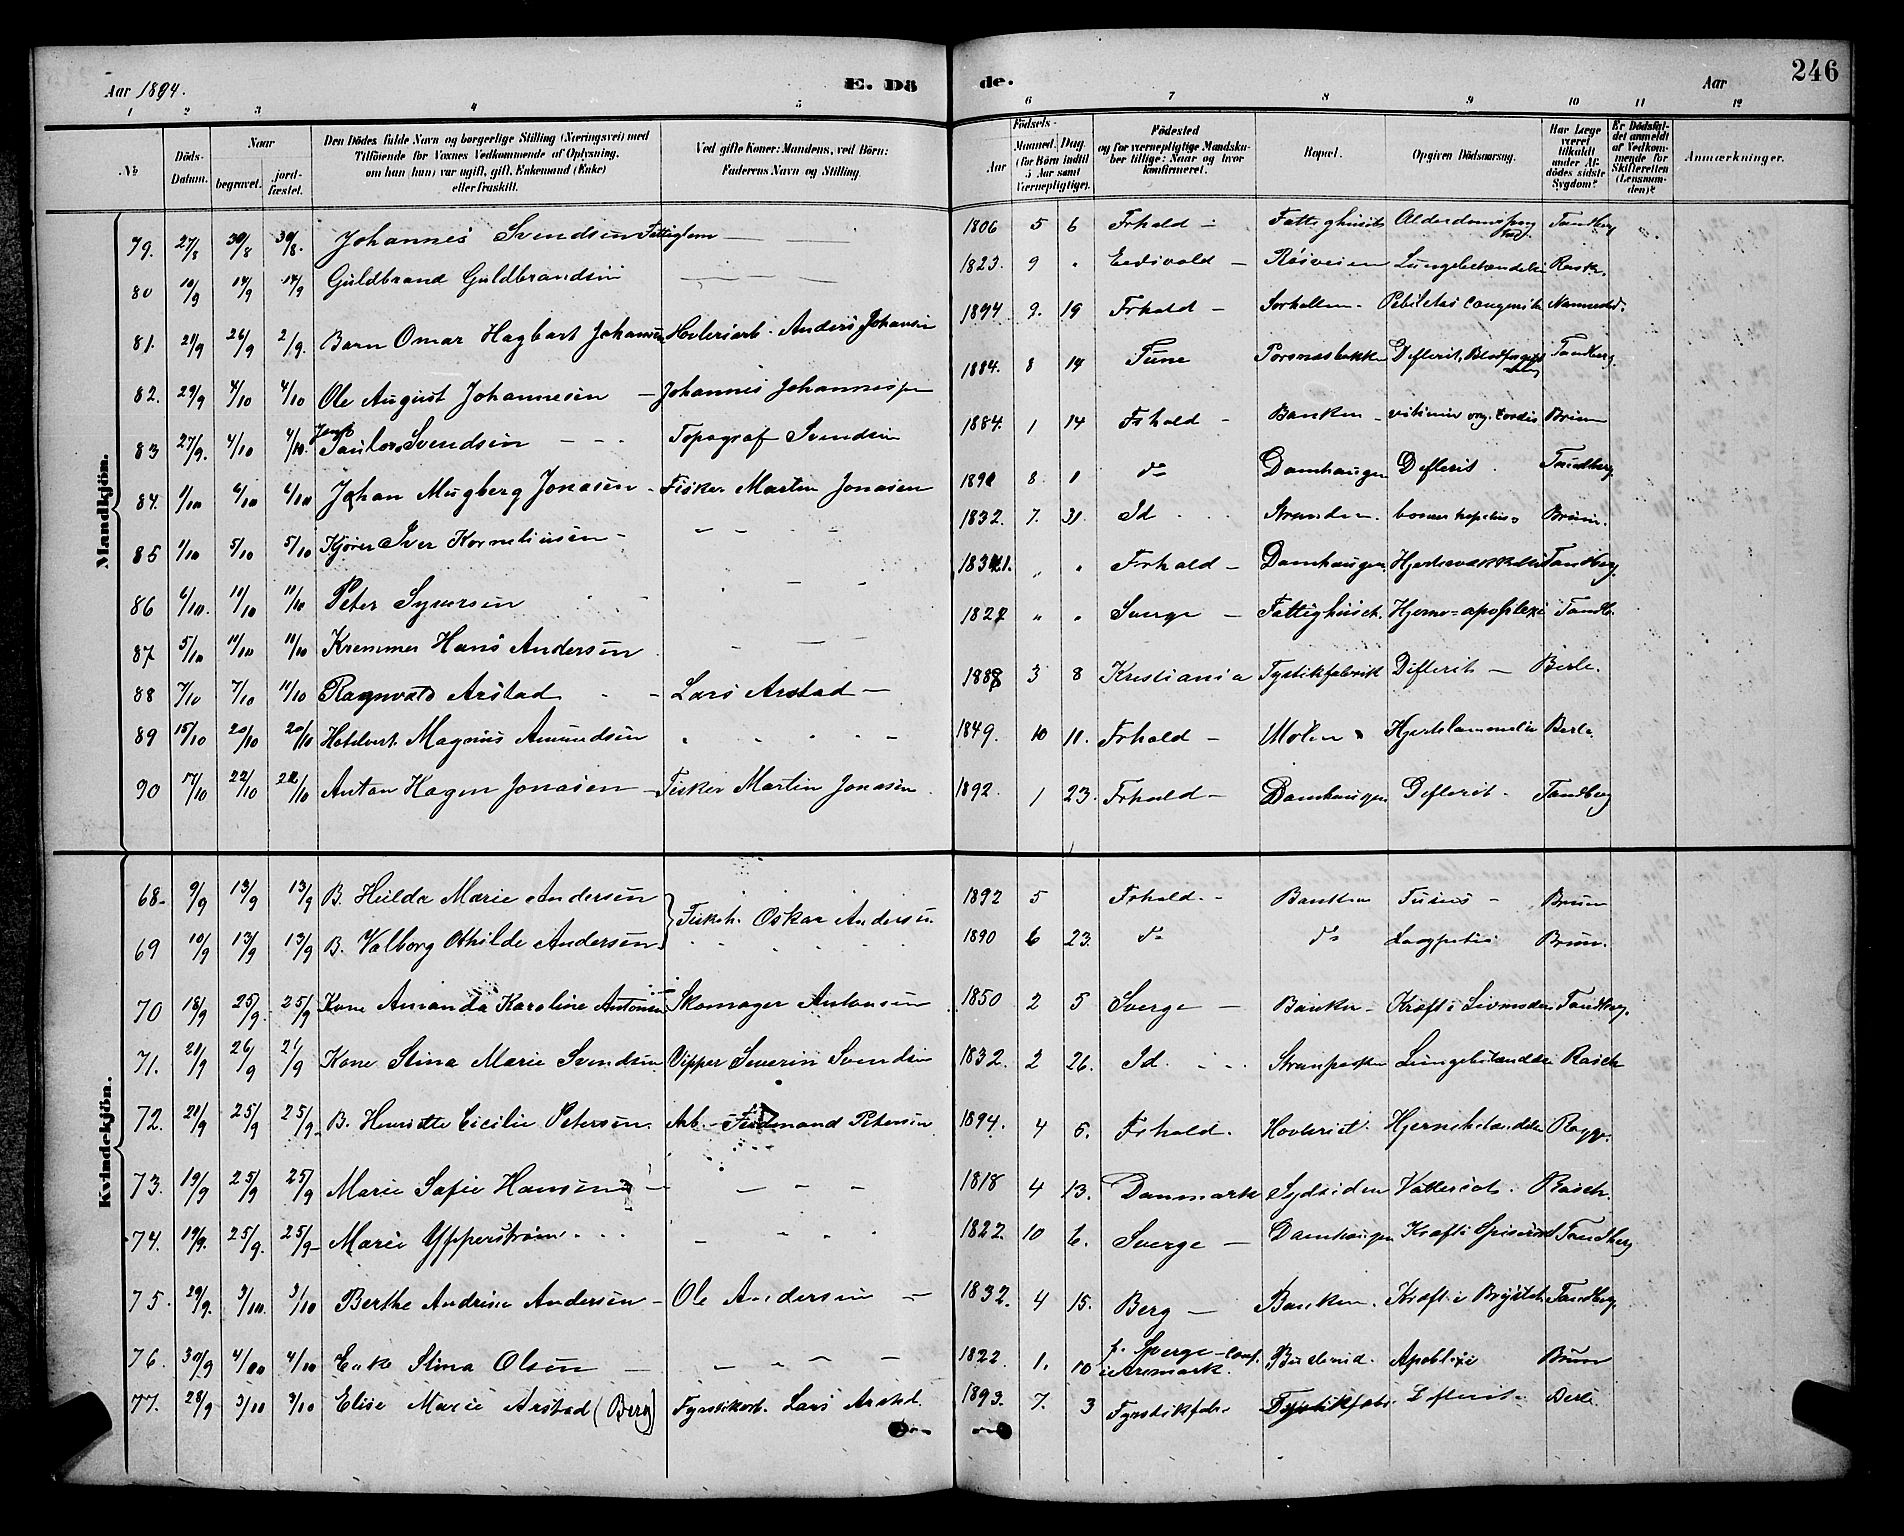 Aar 1894. E. Dö
de. Aar 246
1 2 3 4 5 6 7 8 9 10 11 12
No. Döds-Datum. Naar begravet. jord-fæstet. Den Dödes fulde Navn og borgerlige Stilling (Næringsvei) med Tilföiende for Voxnes Vedkommende af Oplysning, om han (hun) var ugift, gift, Enkemand (Enke) eller fraskilt. Ved gifte Koner: Mandens, ved Börn: Faderens Navn og Stilling. Födsels- Aar Maaned. Dag. (for Börn indtil 5 Aar samt Værnepligtige). Födested og for værnepligtige Mandskaber tillige: Naar og hvor konfirmeret. Bopæl. Opgiven Dödsaarsag. Har Læge været tilkaldt under Afdödes sidste Sygdom? Er Dödsfaldet anmeldt af Vedkommende for Skifteretten (Lensmanden)? Anmærkninger.
Mandkjön.
79. 27/8 30/8 30/8. Johannes Svendsen Fattiglem 1806 5 6 Frhald Fattighuset Alderdoms Tandberg
80 10/9 14/9 14/9 Guldbrand Guldbrandsen 1823. 9 " Eidsvold Röiveien Lungebetændelse Rasch.
81. 21/9 26/9 2/9. Barn Omar Hagbart Johansen Hövleriarb. Anders Johansen 1894 9. 19 Frhald Sorhallen
82. 29/9 4/10 4/10 Ole August Johannesen Johannes Johannesen 1884. 8 14 Tune Difterit, Tandberg.
83 27/9. 4/10 4/10. Svendsen Topograf Svendsen 1884. 1 14 Frhald Banken vitium org. cordis Brun
84. 1/10 6/10 6/10 Johan Mugberg Jonasen Fisker Martin Jonasen 1891 8 1 do Damhaugen Difterit. Tandberg
85 1/10 5/10 5/10 Kjörer Iver Korneliusen 1832. 7. 31. Id Stranden. Brun.
86 6/10. 11/10 11/10 Peter Syversen " " Frhald Damhaugen Tandberg.
87 5/10 11/10 11/10 Kremmer Hans Andersen 1827 " " Sverge Fattighuset. Hjerne-apoplexi Tandb.
88 7/10 7/10 11/10 Ragnvald Arstad Lars Arstad 1888 3 8 Kristiania Fyrstikfabrik Difterit Berle.
89 15/10 20/10 20/10 Magnus Amundsen 1849. 10 11. Frhald Mölen Hjertelammelse Berle.
90 17/10 22/10 22/10 Anton Hagen Jonasen Fisker Martin Jonasen 1892. 1 23. Frhald Damhaugen Difterit. Tandberg
Kvindekjön.
68. 9/9 13/9 13/9 B. Hilda Marie Andersen Fiskeh. Oskar Andersen 1892 5 Frhald. Banken Brun
69 10/9 13/9 13/9 B. Valborg Othilde Andersen 1890 6 23. do do Brun.
70 18/9 25/9. 25/9 Kone Amanda Karoline Antonsen Skomager Antonsen 1850 2 5 Sverge Banken Kræft i Livmoder Tandberg.
71. 21/9 26/9 21/9 Kone Stina Marie Svendsen Vipper Severin Svendsen 1832. 2 26. Id. Lungebetændelse Rasch
72. 21/9 25/9 25/9 B. Henriette Cicilie Petersen. Arb. Ferdinand Petersen 1894. 4 6. Frhald. Hjernebetændelse
73. 19/9 25/9 25/9 Marie Sofie Hansen 1818 4 13. Danmark Sydsiden Vattersot. Rasch.
74. 19/9. 25/9. 25/9 Marie Ypperström 1822. 10 6. Sverge Damhaugen Kræft i Spiserör Tandberg
75. 29/9. 3/10. 3/10 Berthe Andrine Andersen Ole Andersen 1832. 4 15. Berg Banken. Kræft i Brystet Tandberg
76. 30/9 4/10 4/10 Enke Stina Olsen 1822 1. 10 f. Sverge conf. i Aremark. Apoplexi Brun
77. 28/9 3/10 3/10 Elise Marie Arstad (Berg) Fyrstikarb. Lars Arstad. 1893. 7. 3 Fyrstikfabr. Fyrstikfabr. Difterit. Berle